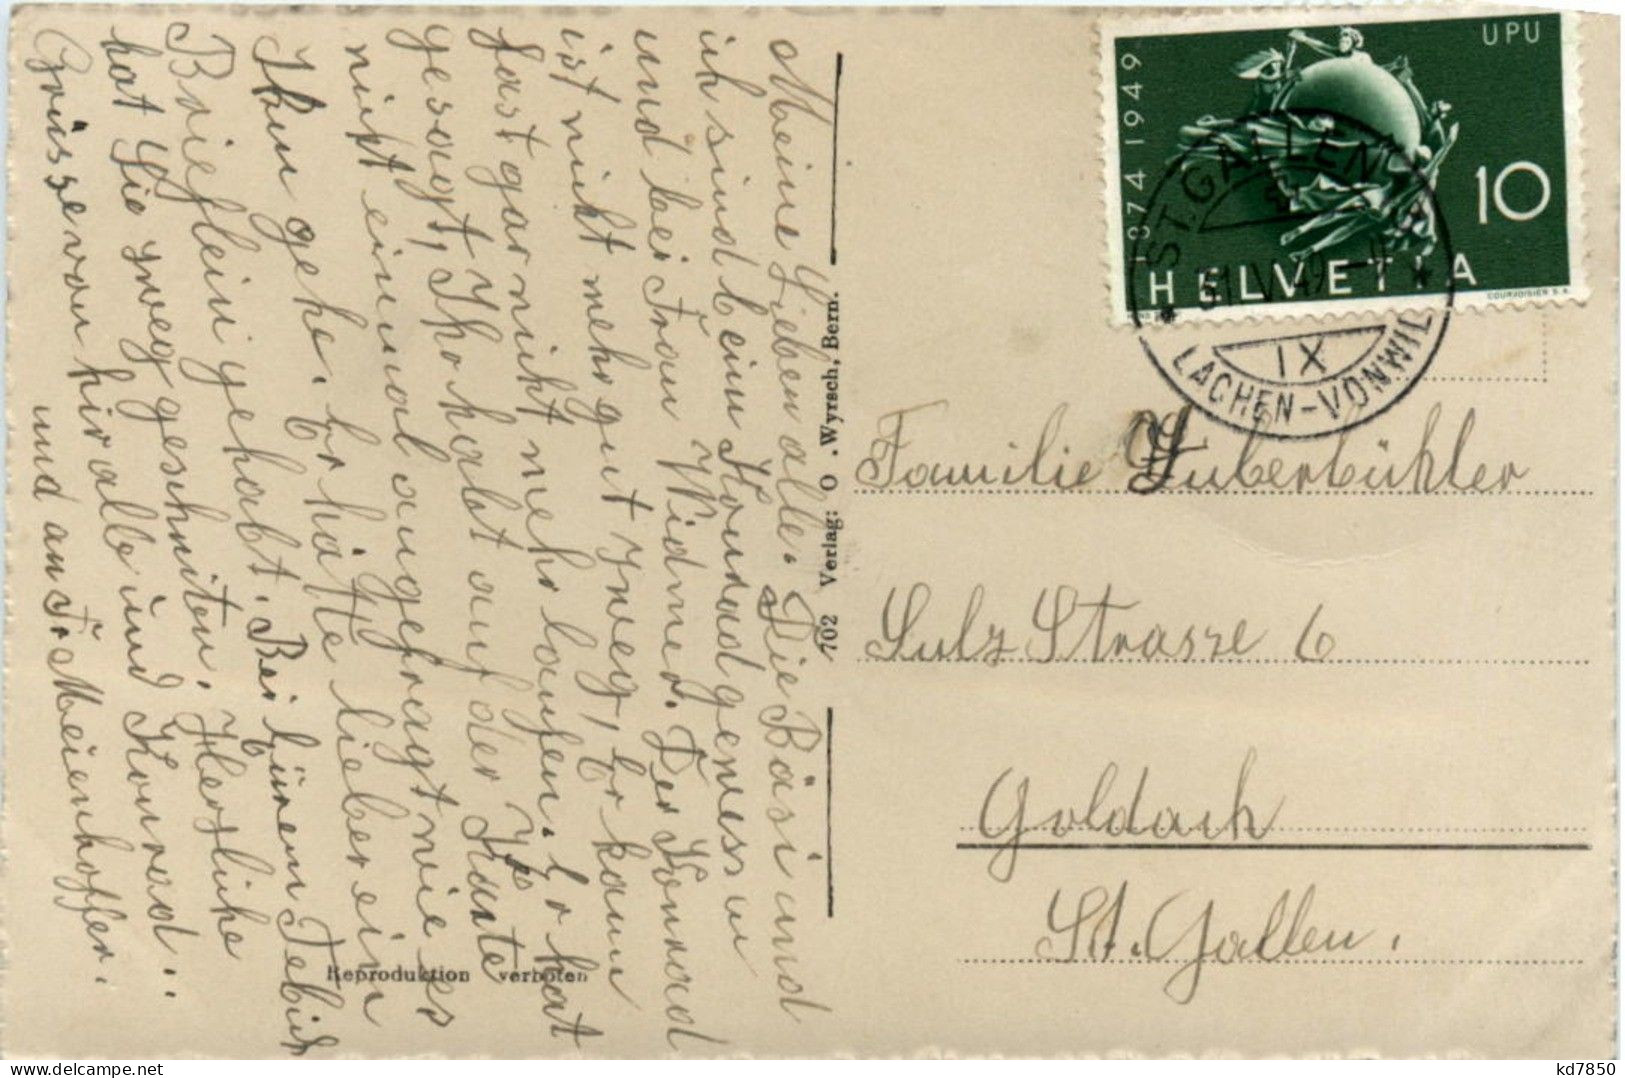 Meine Lieben alle. Die Bäsi und
ich sind beim Konrad gewess u
und bei Frau Widmer. Der Konrad
ist nicht mehr gut zweg, Er kann
fast gar nicht mehr laufen. Er hat
gesagt, Ihr habt auf der Karte
nicht einmal angefragt wie es
Ihm gehe. Er hätte lieber ein
Brieflein gehabt. Bei
hat Sie zweg geschniten. Herzliche
Grüsse von hir alle und Konrad.
und an Fr. Meienhoffer.
702 Verlag: O. Wyrsch, Bern.
Reproduktion verboten
1874 1949
UPU
10
HELVETIA
COURVOISIER S.A.
ST. GALLEN
LACHEN-VONWIL
IX
Familie Huberbühler
Sulz Strasse 6
Goldach
St. Gallen.
kd7850